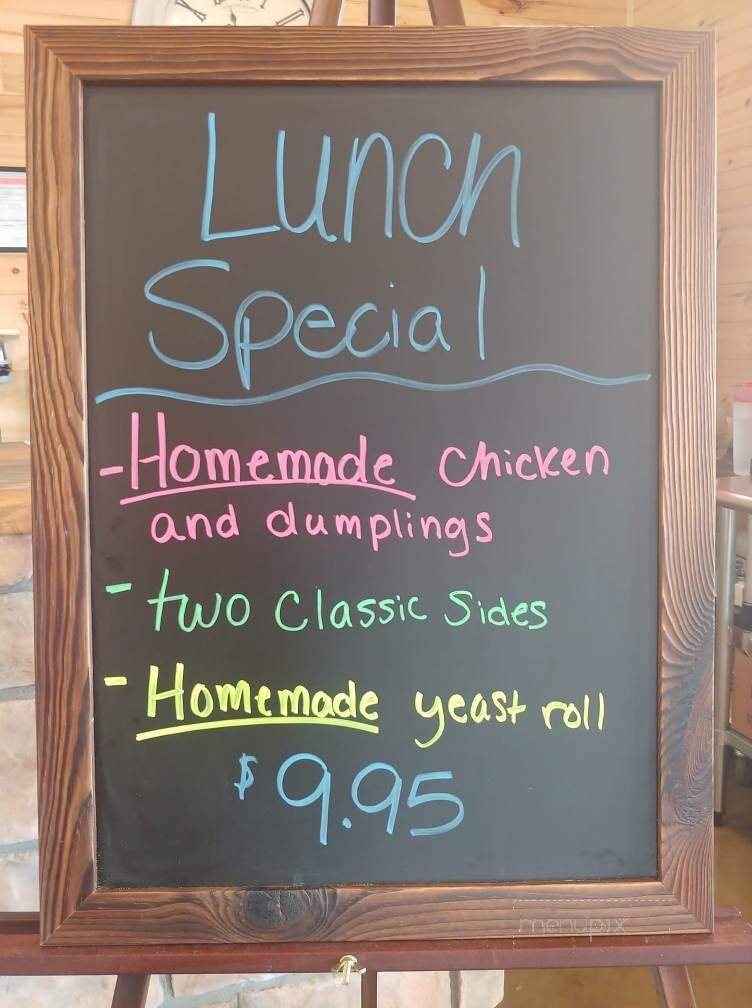 Lunch
Special
- Homemade chicken
and dumplings
- two Classic Sides
- Homemade yeast roll
$9.95
menupix